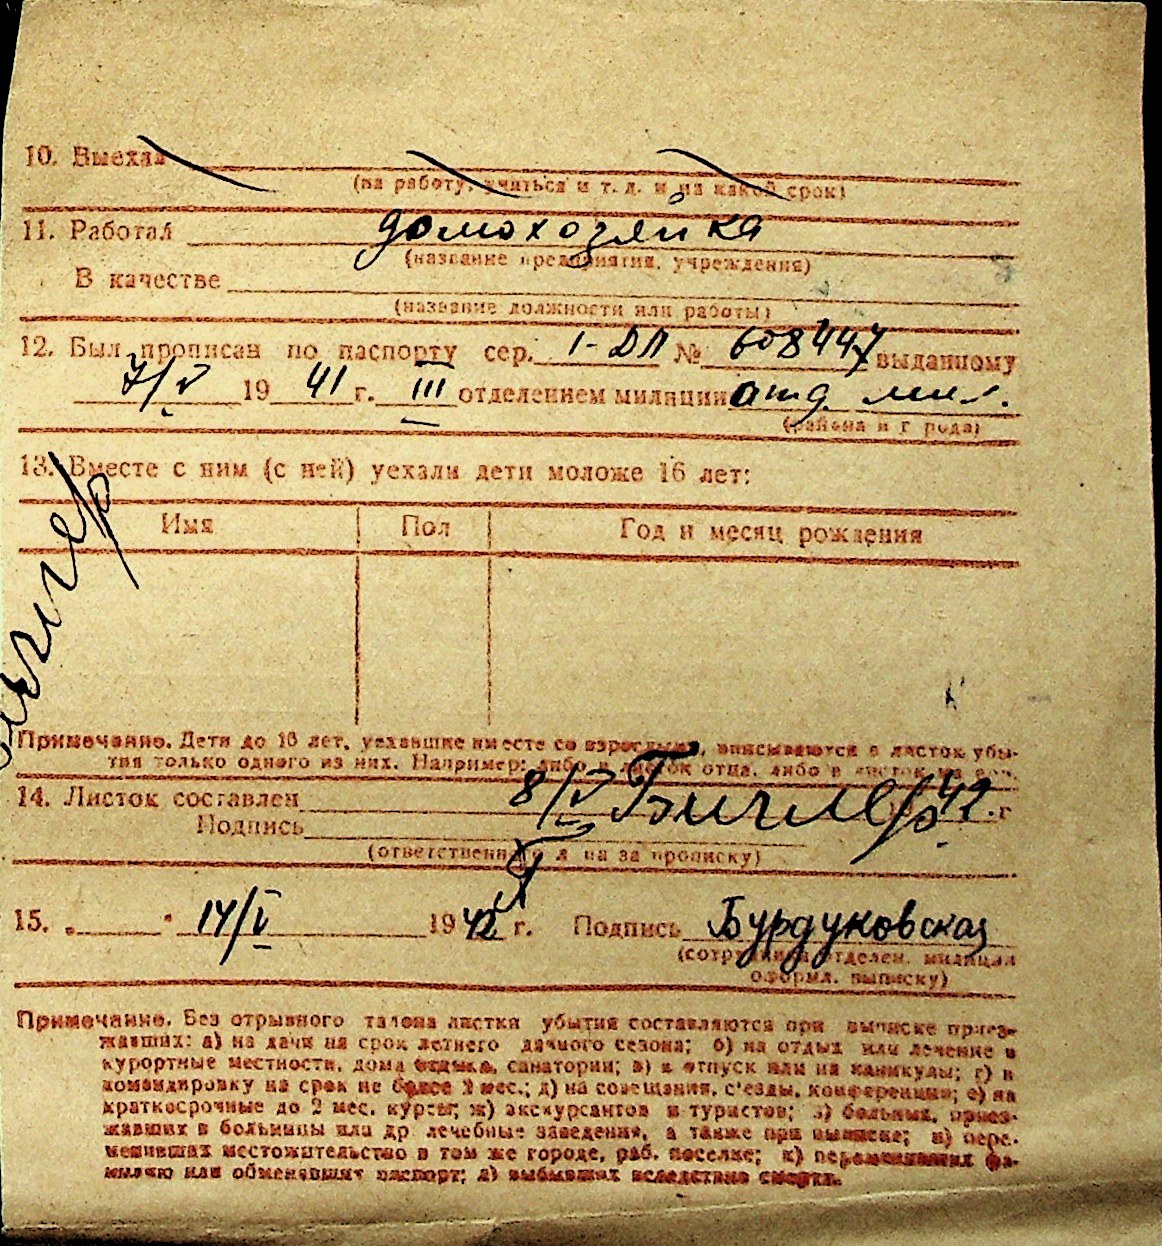 10. Выехал
(на работу, учиться и т. д. и на какой срок)
11. Работал домохозяйка
(название предприятия, учреждения)
В качестве
(название должности или работы)
12. Был прописан по паспорту сер. I-ДП № 608447 выданному
7/V 1941 г. III отделением милиции отд. мил.
(района и города)
13. Вместе с ним (с ней) уехали дети моложе 16 лет:
Имя Пол Год и месяц рождения
Примечание. Дети до 16 лет, уехавшие вместе со взрослыми, вписываются в листок убы-
тия только одного из них. Например: либо в листок отца, либо в листок
14. Листок составлен 8/V 42 г
Подпись
(ответственного лица за прописку)
15. 14/V 1942 г. Подпись Бурдуковская
(сотрудника отделен. милиции
оформл. выписку)
Примечание. Без отрывного талона листки убытия составляются при выписке приез-
жавших: а) на дачи на срок летнего дачного сезона; б) на отдых или лечение в
курортные местности, дома отдыха, санатории; в) в отпуск или на каникулы; г) в
командировку на срок не более 2 мес.; д) на совещания, съезды, конференции; е) на
краткосрочные до 2 мес. курсы; ж) экскурсантов и туристов; з) больных, приез-
жавших в больницы или др лечебные заведения, а также при выписке; и) пере-
менивших местожительство в том же городе, раб. поселке; к) переменивших фа-
милию или обменявших паспорт; л) выбывших вследствие смерти.